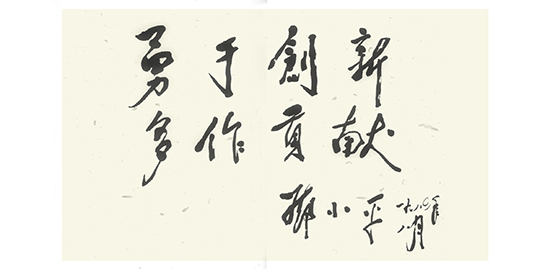 勇于創新
多作贡献
鄧小平 一九八〇年
八月